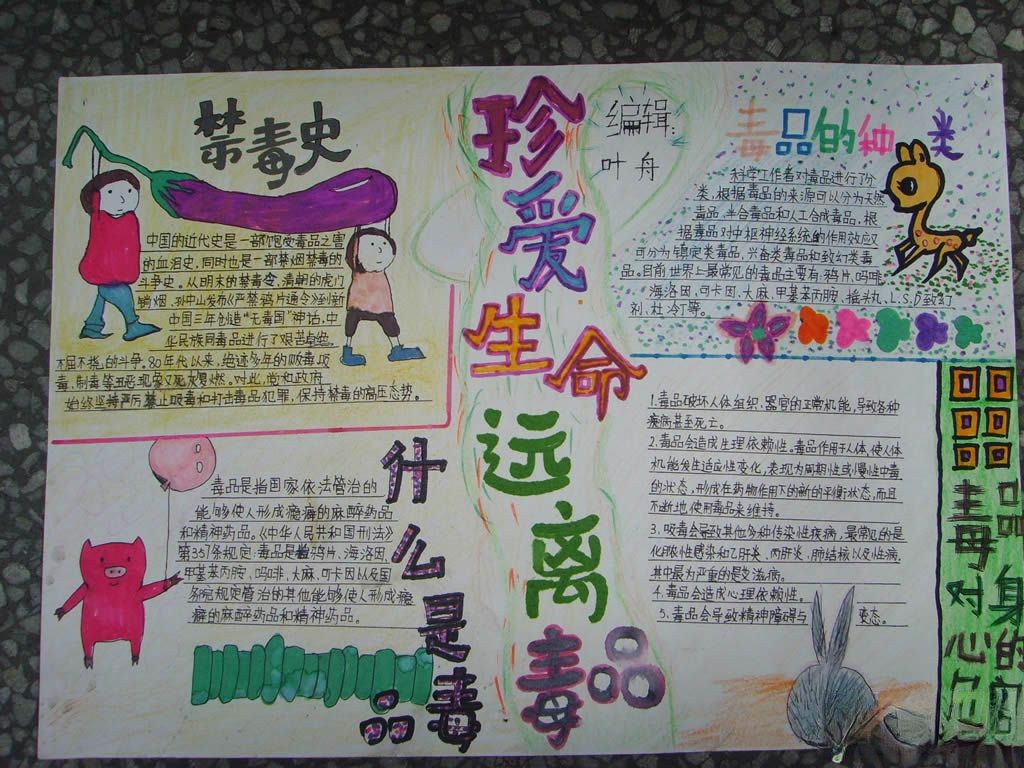 珍爱生命远离毒品
编辑:
叶舟
禁毒史
中国的近代史是一部饱受毒品之害
的血泪史,同时也是一部禁烟禁毒的
斗争史。从明末的禁毒令,清朝的虎门
销烟,孙中山发布《严禁鸦片通令》到新
中国三年创造"无毒国"神话,中
华民族同毒品进行了艰苦卓绝,
不屈不挠的斗争。80年代以来,绝迹多年的吸毒、贩
毒、制毒等丑恶现象又死灰复燃。对此,党和政府
始终坚持严厉禁止吸毒和打击毒品犯罪,保持禁毒的高压态势。
毒品的种类
科学工作者对毒品进行了分
类,根据毒品的来源可以分为天然
毒品,半合毒品和人工合成毒品,根
据毒品对中枢神经系统的作用效应
可分为镇定类毒品,兴奋类毒品和致幻类毒
品。目前世界上最常见的毒品主要有:鸦片,吗啡
海洛因,可卡因,大麻,甲基苯丙胺,摇头丸,L.S.D致幻
剂,杜冷丁等。
什么是毒品
毒品是指国家依法管治的
能够使人形成瘾癖的麻醉药品
和精神药品。《中华人民共和国刑法》
第357条规定:毒品是鸦片、海洛因
甲基苯丙胺、吗啡、大麻、可卡因以及国
务院规定管治的其他能够使人形成瘾
癖的麻醉药品和精神药品。
毒品对身心的
1.毒品破坏人体组织、器官的正常机能,导致各种
疾病甚至死亡。
2.毒品会造成生理依赖性。毒品作用于人体,使人体
机能发生适应性变化,表现为周期性或慢性中毒
的状态,形成在药物作用下的新的平衡状态,而且
不断地使用毒品来维持。
3.吸毒会导致其他多种传染性疾病,最常见的是
化脓性感染和乙肝炎、丙肝炎、肺结核以及性病,
其中最为严重的是艾滋病。
4.毒品会造成心理依赖性。
5.毒品会导致精神障碍与 变态。